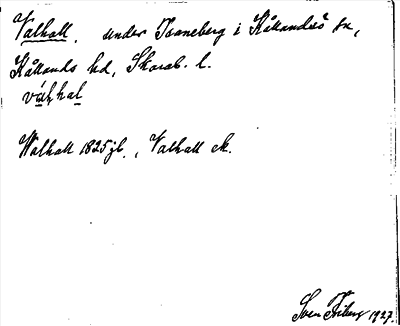 Valhall, under Traneberg i Kållandsö sn,
Kållands hd, Skarab. l.
váḷhal
Walhall 1825 jb., Valhall ek.
Sven Friberg 1927.